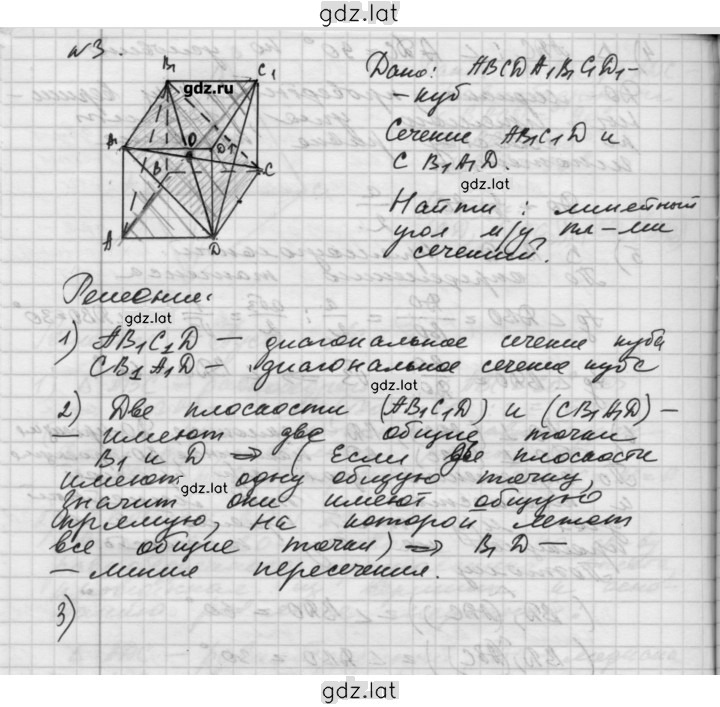 gdz.lat
№3.
B₁ C₁
gdz.ru
A₁ O D₁
B C
A D
Дано: ABCDA₁B₁C₁D₁-
- куб
Сечение AB₁C₁D и
CB₁A₁D.
gdz.lat
Найти: линейный
угол м/у пл-ми
сечений?
Решение:
1) AB₁C₁D — диагональное сечение куба
CB₁A₁D — диагональное сечение куба
gdz.lat
2) Две плоскости (AB₁C₁D) и (CB₁A₁D) —
— имеют две общие точки
B₁ и D ⇒ (Если две плоскости
имеют одну общую точку,
gdz.lat
значит они имеют общую
прямую, на которой лежат
все общие точки) ⇒ B₁D —
— линия пересечения.
3)
gdz.lat
gdz.lat